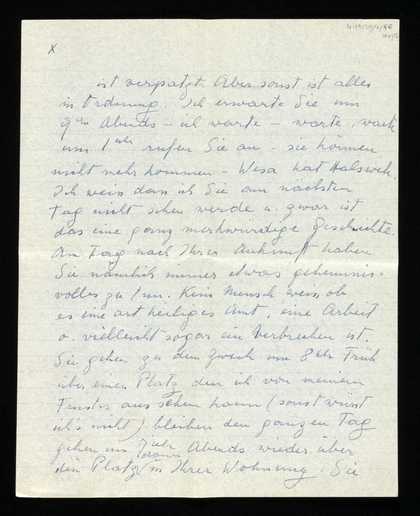 x
ist verpatzt. Aber sonst ist alles
in Ordnung. Ich erwarte Sie um
9 Uhr Abends – ich warte – warte, wart
um 1 Uhr rufen Sie an – sie können
nicht mehr kommen – Wesa hat Halsweh.
Ich weiss dass ich Sie am nächsten
Tag nicht sehen werde u. zwar ist
das eine ganz merkwürdige Geschichte.
Am Tag nach Ihrer Ankunft haben
Sie nämlich immer etwas geheimnis-
volles zu tun. Kein Mensch weiss ob
es eine art heiliges Amt, eine Arbeit
o. vielleicht sogar ein Verbrechen ist.
Sie gehen zu dem Zweck um 8 Uhr Früh
über einen Platz den ich von meinem
Fenster aus sehen kann (sonst wüsst
ich's nicht) bleiben den ganzen Tag
gehen um 7 Uhr Abends wieder über
den Platz in Ihrer Wohnung. Sie